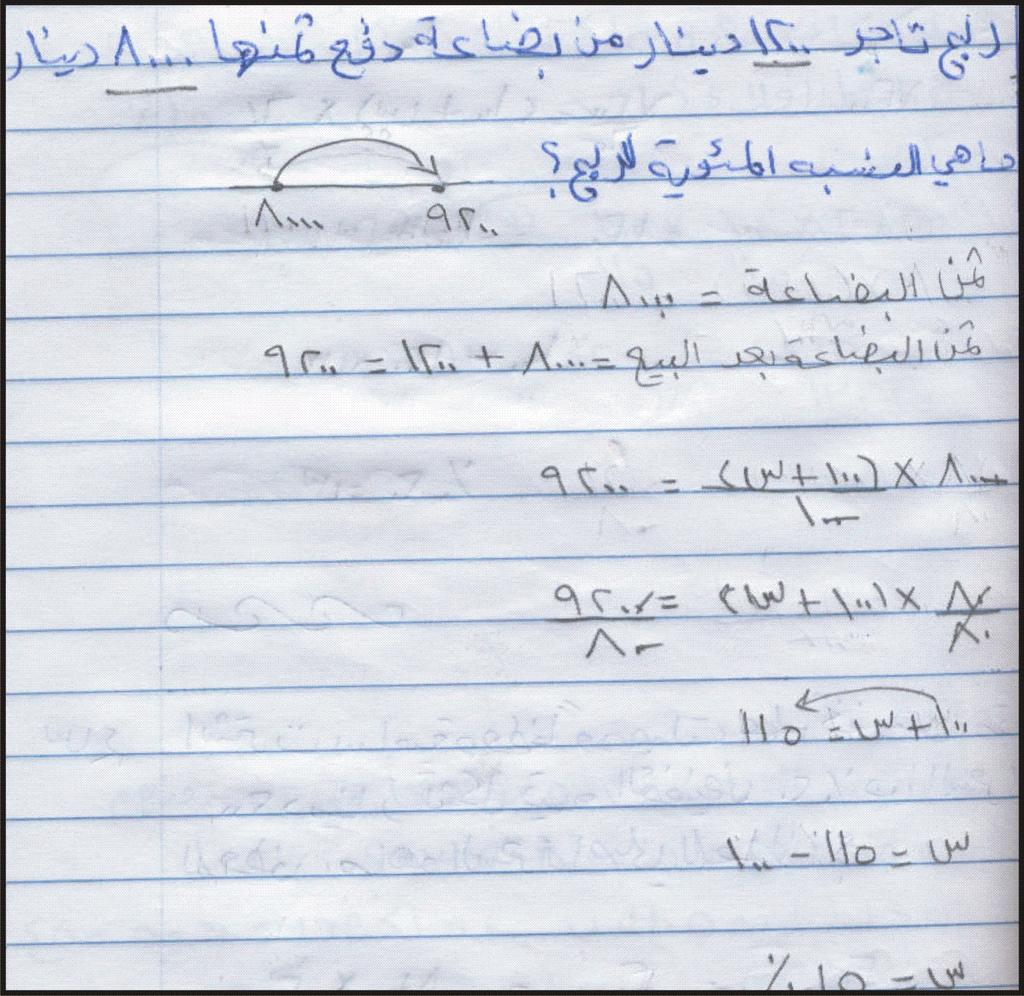 ربح تاجر ١٢٠٠ دينار من بضاعة دفع ثمنها ٨٠٠٠ دينار
ما هي النسبه المئوية للربح؟
٨٠٠٠ ٩٢٠٠
ثمن البضاعة = ٨٠٠٠
ثمن البضاعة بعد البيع = ٨٠٠٠ + ١٢٠٠ = ٩٢٠٠
٨٠٠٠ × (١٠٠ + س) / ١٠٠ = ٩٢٠٠
٨٠ / ٨٠ × (١٠٠ + س) = ٩٢٠٠ / ٨٠
١٠٠ + س = ١١٥
س = ١١٥ - ١٠٠
س = ١٥ ٪